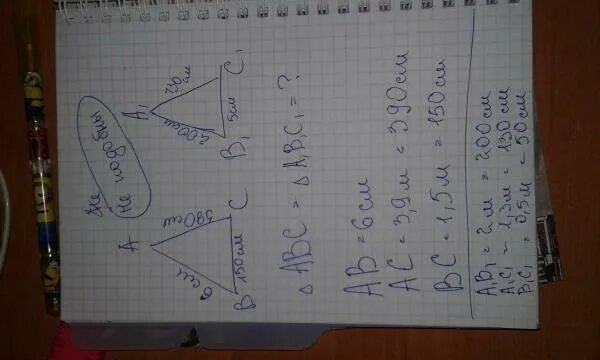 Не подобны
A A₁
6 см 390 см 200 см 130 см
B 150 см C B₁ 5 см C₁
△ ABC = △ A₁B₁C₁ = ?
AB = 6 см
AC = 3,9 м = 390 см
BC = 1,5 м = 150 см
A₁B₁ = 2 м = 200 см
A₁C₁ = 1,3 м = 130 см
B₁C₁ = 0,5 м = 50 см